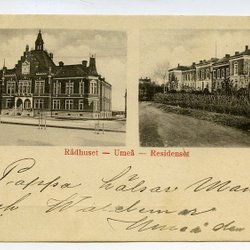 Rådhuset — Umeå — Residenset
Pappa hälsar Mam
Waldemar
Umeå den